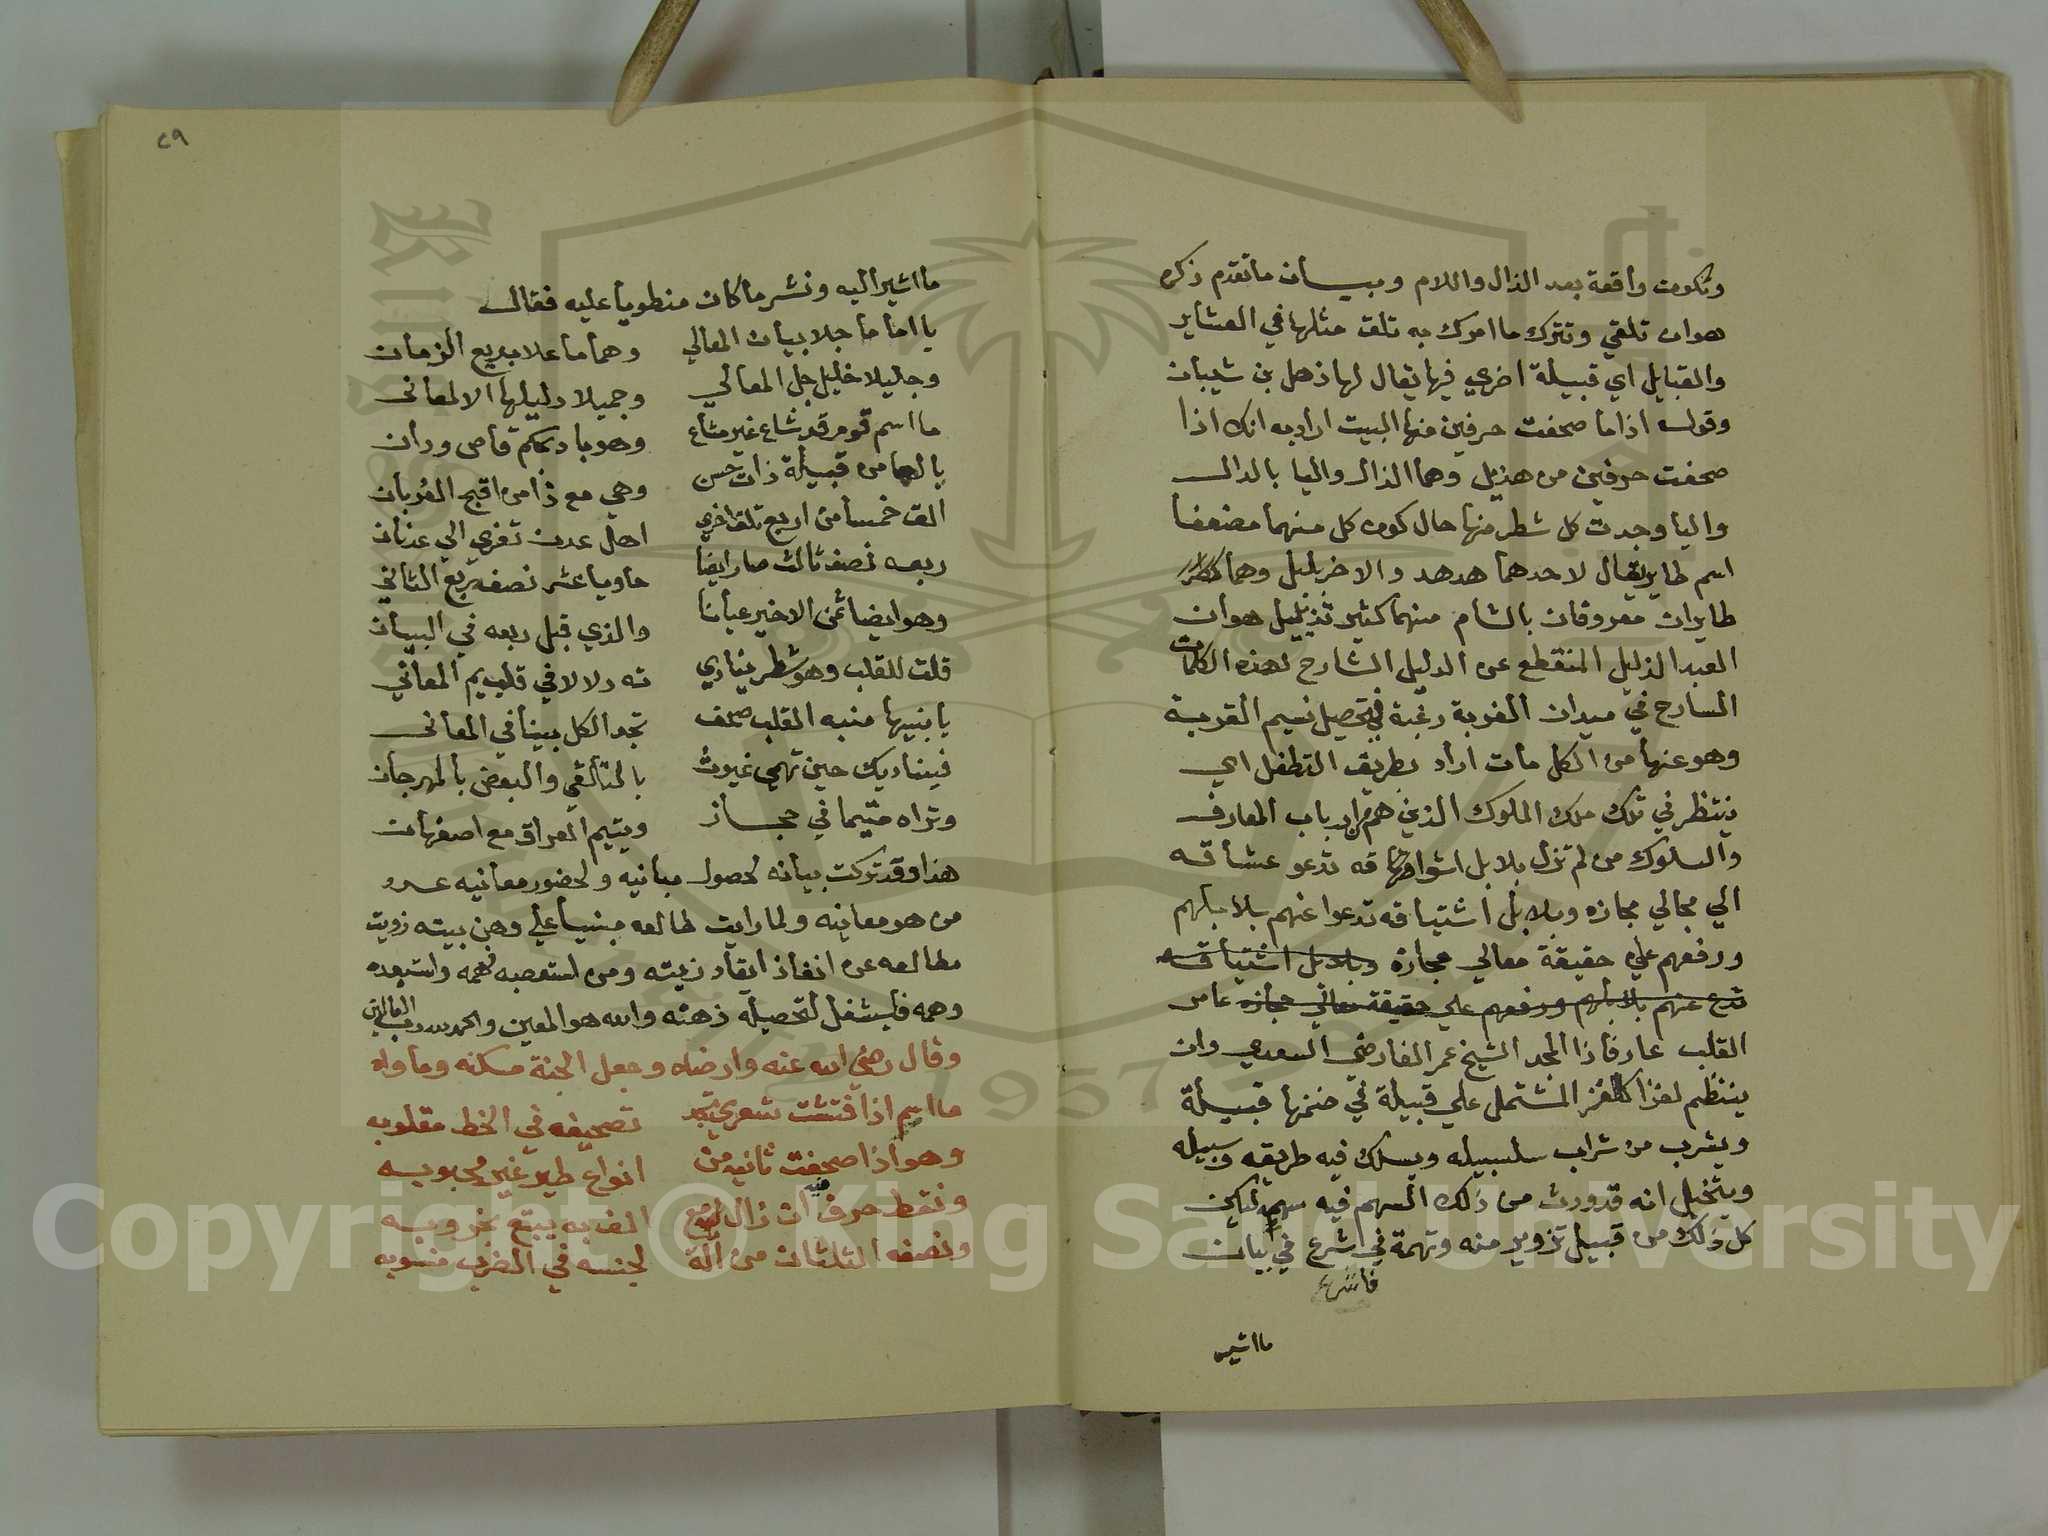 وتكون واقعة بعد الذال واللام وبيان ما تقدم ذكره
هو ان تلقي وتترك ما امرك به تلق مثلها في العشاير
والقبايل اي قبيلة اخري فيها يقال لها ذهل بن شيبان
وقوله اذا ما صحفت حرفين منها البيت اراد به انك اذا
صحفت حرفين من هذيل وهما الذال واليا بالدال
واليا وجدت كل شطر منها حال كون كل منهما مضعفا
اسم طاير يقال لاحدهما هدهد والاخر بلبل وهما
طايران معروفان بالشام منهما كثير هو ان
العبد الذليل المنقطع عن الدليل الشارح لهذه الكلمات
السارح في ميدان الغربة رغبة في تحصيل نسيم القربة
وهو عنها من الكل مات اراد بطريق التطفل اي
ينتظر في ملك الملوك الذين هم ارباب المعارف
والسلوك من لم تزل بلابل اشواقه تدعو عشاقه
الي مجالي مجازه وبلابل اشتياقه تدعوا عنهم بلابلهم
ورفعهم علي حقيقة معالي مجازه وبلابل اشتياقه
تدع عنهم بلابلهم ورفعهم علي حقيقة معاني مجازه عامر
القلب عارفا ذا المجد الشيخ عمر الفارضي السعدي وان
ينتظم لغزا كلغز المشتمل علي قبيلة في ضمنها قبيلة
ويشرب من شراب سلسبيله ويسلك فيه طريقه وسبيله
ويتخيل انه قد ورث من ذلك السهم فيه سهم لكن
كل ذلك من قبيل تزوير منه وتهمة في اشرع في بيان
فاشرع
ما اشير
٢٩
ما اشير اليه ونشر ما كان منطويا عليه فقال
يا اماما جلا بيان المعالي وهماما علا بديع الزمان
وجليلا خليل جل المعالي وجميلا دليلها الالمعاني
ما اسم قوم قد شاع غير مشاع وهو باد لكم قاص ودان
يا لها من قبيلة ذات حسن وهي مع ذا من اقبح الغربان
الق خمسا من اربع تلق اخري اهل عدن تعزي الي عدنان
ربعه نصف ثالث صار ايضا حاويا عشر نصفه ربع الثاني
وهو ايضا ثمن الاخير عيانا والذي قبل ربعه في البيان
قلت للقلب وهو شطر ينادي ته دلالا في قلب يم المعاني
يا نبيها منبه القلب صحف تجد الكل بينا في المعاني
فيناديك حين تهمي غيوث بالتألقي والبعض بالمهرجان
وتراه متيما في حجاز ويتيم العراق مع اصفهان
هذا وقد تركت بيانه لحصول مبانيه ولحضور معانيه عند
من هو معانيه ولما رايت طالعه مبنيا علي وهن بيته زويت
مطالعه عن انفاذ ايقاد زيته ومن استصعبه فهمه واستبعده
وهمه فليشغل لتحصيله ذهنه والله هو المعين والحمد لله رب العالمين
وقال رضي الله عنه وارضاه وجعل الجنة مسكنه وماواه
ما اسم اذا فتشت شعري تجد تصحيفه في الخط مقلوبه
وهو اذا صحفت ثانيه من انواع طير غير محبوبه
ونقط حرف فيه ان زال مع الف به يبتع بخروبه
ونصفه الثلثان من آلة لجنسه في الضرب منسوبه
Copyright © King Saud University
1957